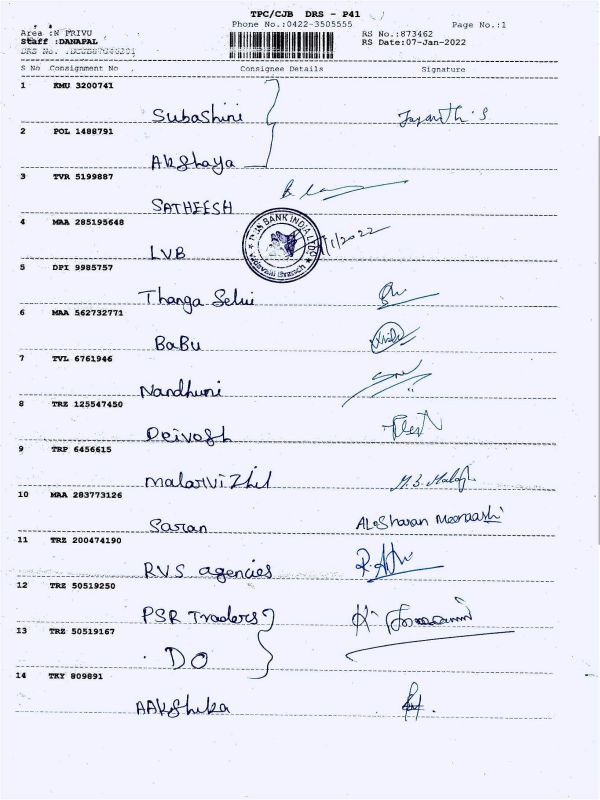 TPC/CJB DRS - P41
Phone No.:0422-3505555 Page No.:1
Area :N PRIVU RS No.:873462
Staff :DANAPAL RS Date:07-Jan-2022
DRS No.
S No Consignment No Consignee Details Signature
1 KMU 3200741
Subashini Jayanth.S
2 POL 1488791
Akshaya
3 TVR 5199887
SATHEESH
4 MAA 285195648
BANK INDIA LTD
LVB /1/2022
Branch
5 DPI 9985757
Thanga Selvi
6 MAA 562732771
BaBu
7 TVL 6761946
Nandhini
8 TRZ 125547450
Deivesh
9 TRP 6456615
MalarVizhil
10 MAA 283773126
Saran
11 TRZ 200474190
RVS agencies
12 TRZ 50519250
PSR Traders
13 TRZ 50519167
DO
14 TKY 809891
AAKshika